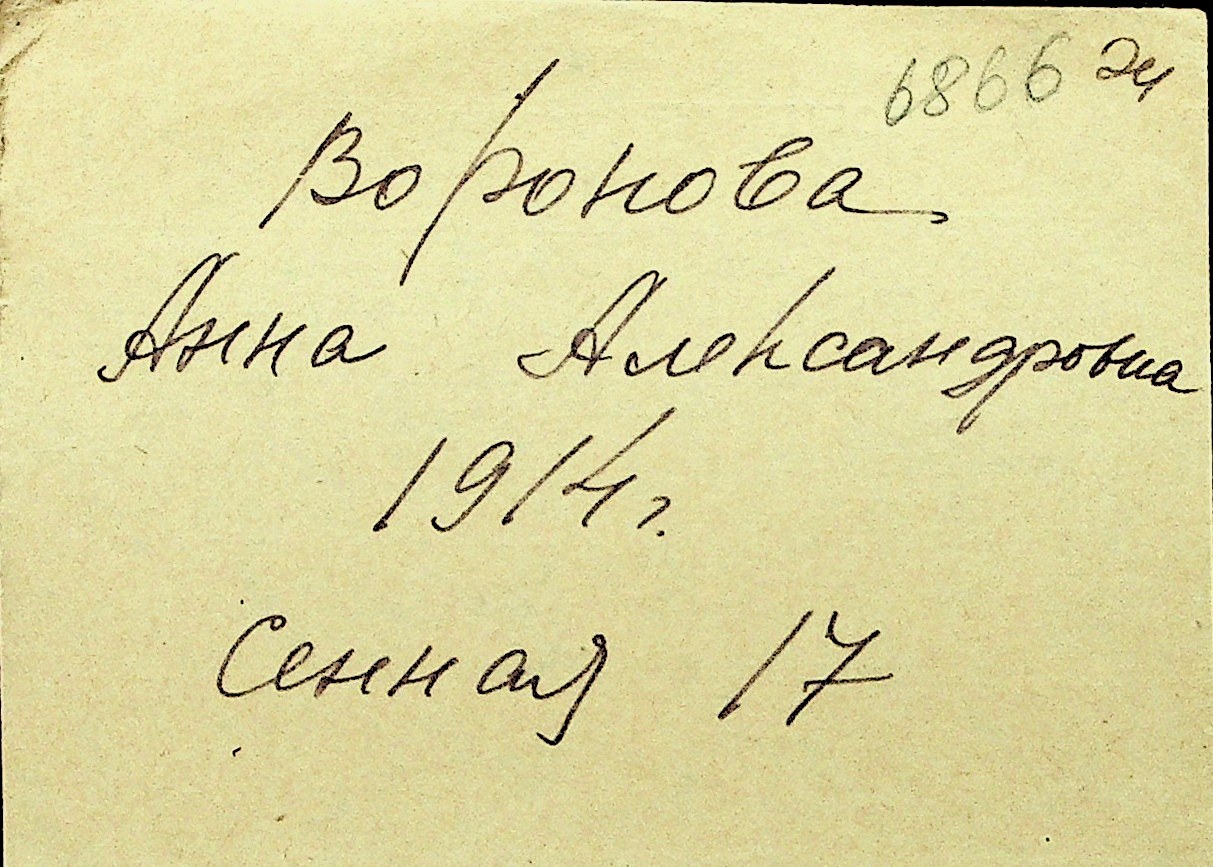 6866 эч
Воронова
Анна Александровна
1914г.
Сенная 17